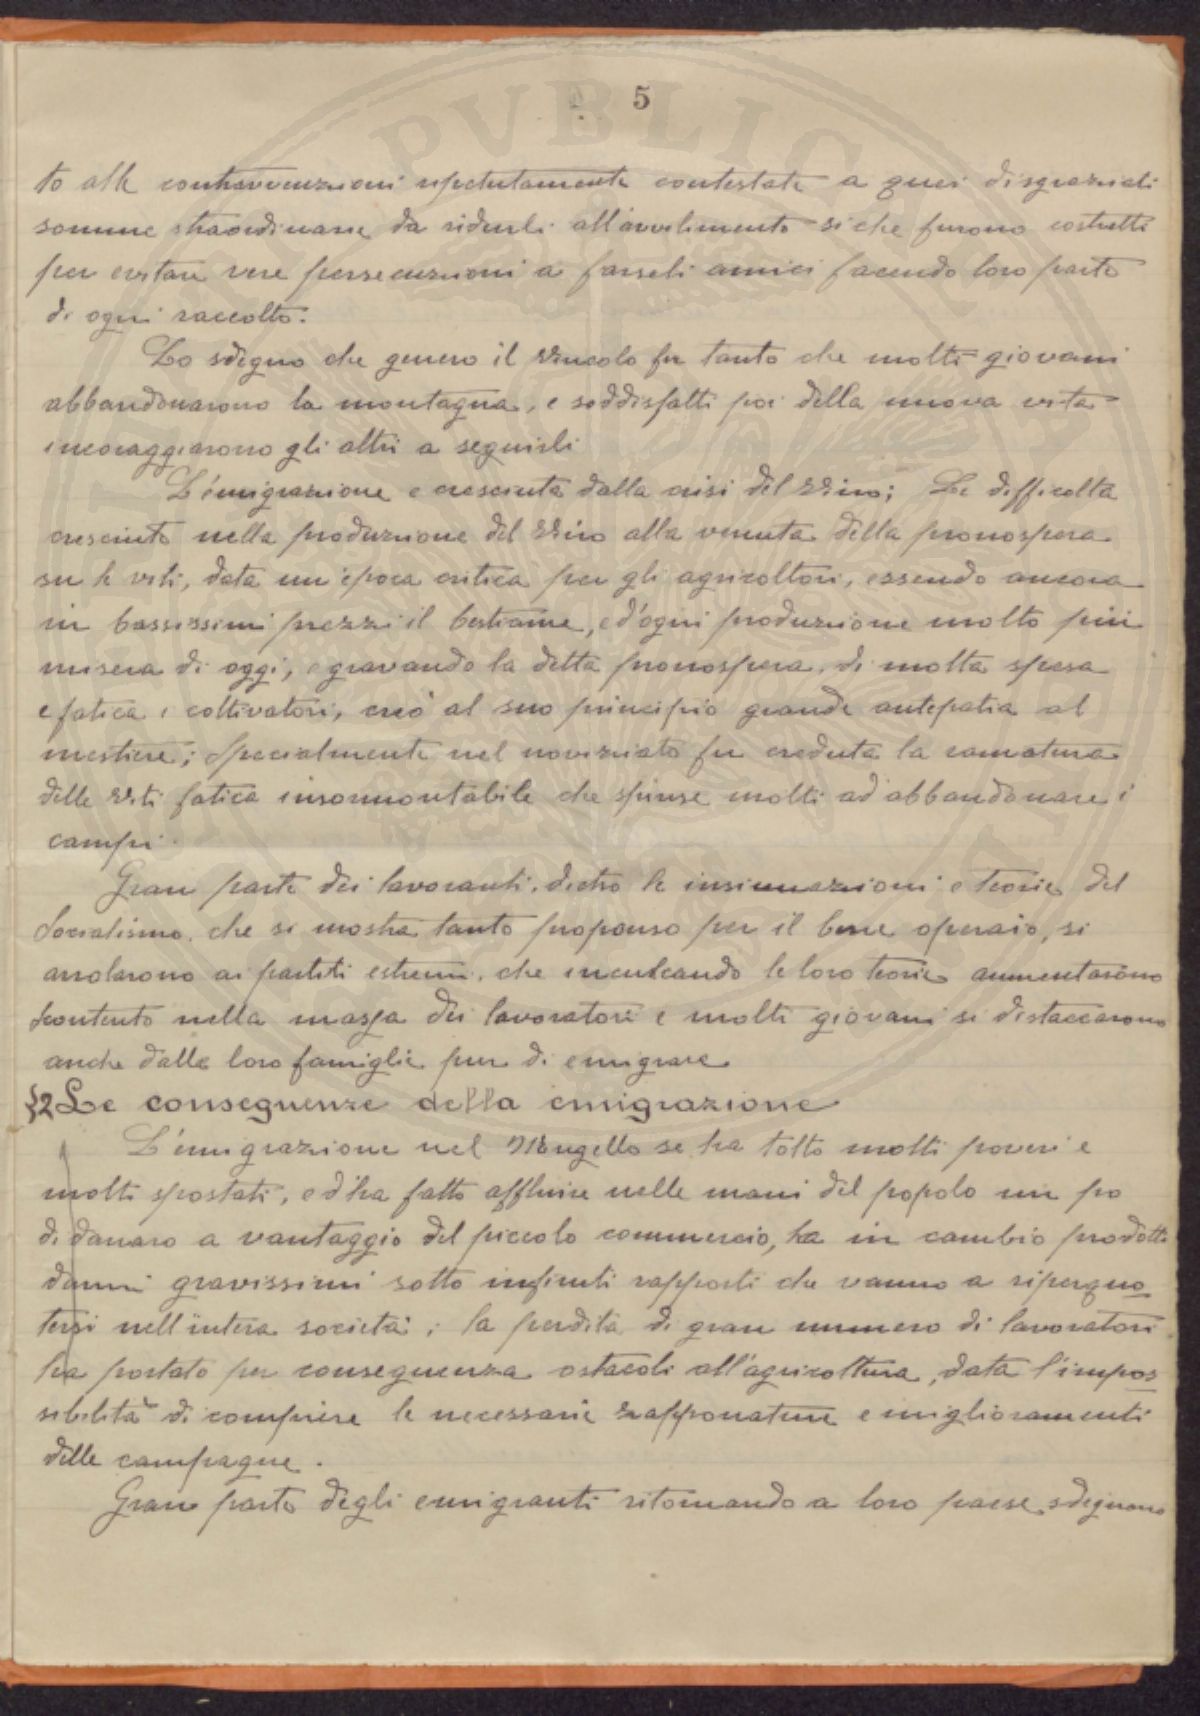 5
to alle contravvenzioni repetutamente contestate a quei disgraziati
somme straordinarie da ridurli all'avvelimento si che furono costretti
per evitare vere persecuzioni a farseli amici facendo loro parte
di ogni raccolto.
Lo sdegno che genero il vincolo fu tanto che molti giovani
abbandonarono la montagna, e soddisfatti poi della nuova vita
incoraggiarono gli altri a seguirli
L'emigrazione e cresciuta dalla crisi del vino; Le difficolta
cresciute nella produzione del vino alla venuta della pronospera
su le viti, data un'epoca critica per gli agricoltori, essendo ancora
in bassissimi prezzi il bestiame, ed'ogni produzione molto più
misera di oggi, e gravando la detta pronospera, di molta spesa
e fatica i coltivatori, creò al suo principio grande antepatia al
mestiere; Specialmente nel noviziato fu creduta la ramatura
delle viti fatica insormontabile che spinse molti ad abbandonare i
campi.
Gran parte dei lavoranti, dietro le insinuazioni e teorie del
Socialismo, che si mostra tanto propenso per il bene operaio, si
arrolarono ai partiti estremi, che inculcando le loro teorie aumentarono
scontento nella massa dei lavoratori e molti giovani si distaccarono
anche dalle loro famiglie pur di emigrare
§2 Le conseguenze della emigrazione
L'emigrazione nel Mugello se ha tolto molti poveri e
molti spostati, ed'ha fatto affluire nelle mani del popolo un po
di danaro a vantaggio del piccolo commercio, ha in cambio prodotti
danni gravissimi sotto infiniti rapporti che vanno a riperquo
tersi nell'intera società; la perdita di gran numero di lavoratori
ha portato per conseguenza ostacoli all'agricoltura, data l'impos
sibilità di compiere le necessarie zapponature e miglioramenti
delle campagne.
Gran parte degli emigranti ritornando a loro paese sdegnano